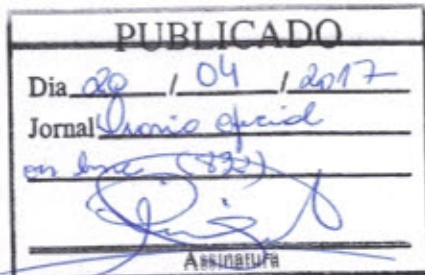 PUBLICADO
Dia 20 / 04 / 2017
Jornal Diario oficial
(892)
Assinatura